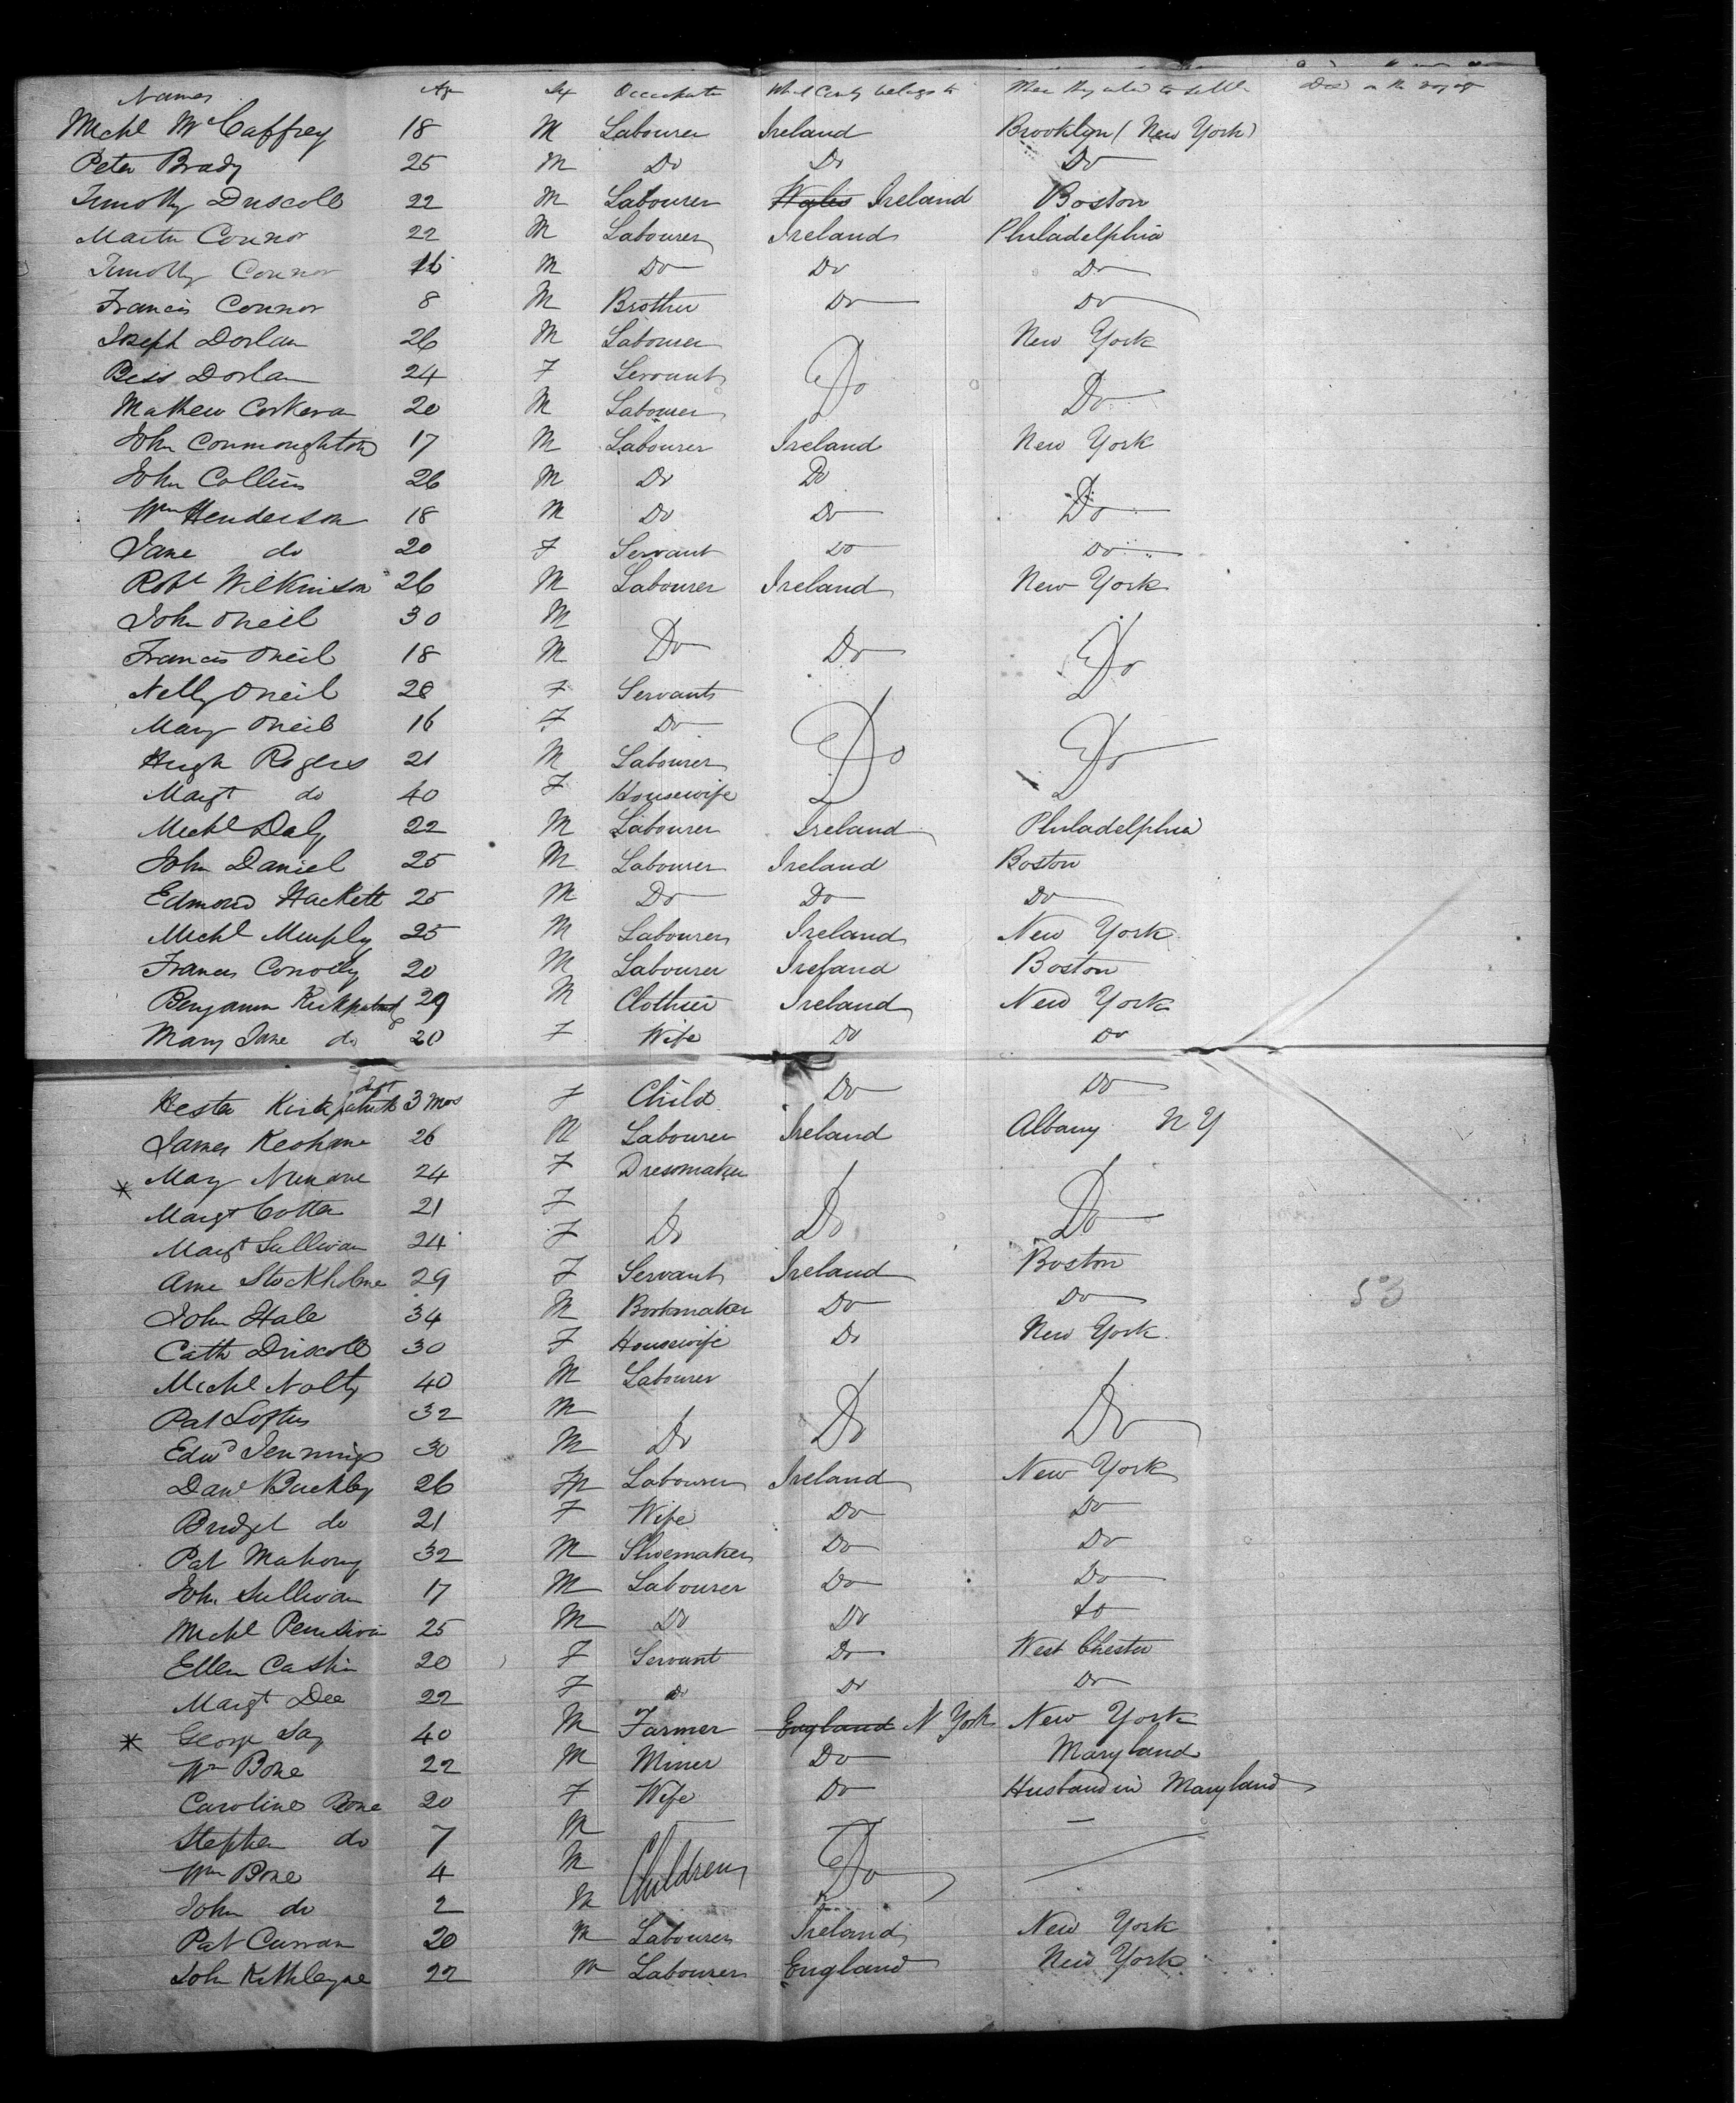 Names Age Sex Occupation What Conty belongs to Where they intend to settle Died on the voyage
Michl McCaffrey 18 M Labourer Ireland Brooklyn (New York)
Peter Brady 25 M Do Do Do
Timothy Driscoll 22 M Labourer Wales Ireland Boston
Martin Connor 22 M Labourer Ireland Philadelphia
Timothy Connor 16 M Do Do Do
Francis Connor 8 M Brother Do Do
Joseph Dorlan 26 M Labourer New York
Bess Dorlan 24 F Servant Do Do
Mathew Corkeran 20 M Labourer
John Connoughton 17 M Labourer Ireland New York
John Collins 26 M Do Do
Wm Henderson 18 M Do Do Do
Jane do 20 F Servant Do Do
Robt Wilkinson 26 M Labourer Ireland New York
John Oneil 30 M
Francis Oneil 18 M Do Do Do
Nelly Oneil 20 F Servant
Mary Oneil 16 F Do
Hugh Rogers 21 M Labourer Do Do
Margt do 40 F Housewife
Michl Daly 22 M Labourer Ireland Philadelphia
John Daniel 25 M Labourer Ireland Boston
Edmond Hackett 25 M Do Do Do
Michl Murphy 25 M Labourer Ireland New York
Francis Conolly 20 M Labourer Ireland Boston
Benjamin Kirkpatrick 29 M Clothier Ireland New York
Mary Jane do 20 F Wife Do Do
Hester Kirkpatrick 3 Mos F Child Do Do
James Keohane 26 M Labourer Ireland Albany N Y
* Mary Nunane 24 F Dressmaker
Margt Cotter 21 F
Margt Sullivan 24 F Do Do Do
Ann Stockholme 29 F Servant Ireland Boston
John Hale 34 M Bookmaker Do Do
53
Cath Driscoll 30 F Housewife Do New York
Michl Nolty 40 M Labourer
Pat Loftus 32 M
Edwd Jennings 30 M Do Do Do
Danl Buckley 26 M Labourer Ireland New York
Bridget do 21 F Wife Do Do
Pat Mahony 32 M Shoemaker Do Do
John Sullivan 17 M Labourer Do Do
Michl 25 M Do Do do
Ellen Cashin 20 F Servant Do West Chester
Margt Dee 22 F do Do Do
* George Say 40 M Farmer England N York New York
Wm Bone 22 M Miner Do Maryland
Caroline Bone 20 F Wife Do Husband in Maryland
Stephen do 7 M
Wm Bone 4 M Children Do
John do 2 M
Pat Curran 20 M Labourer Ireland New York
John 22 M Labourer England New York